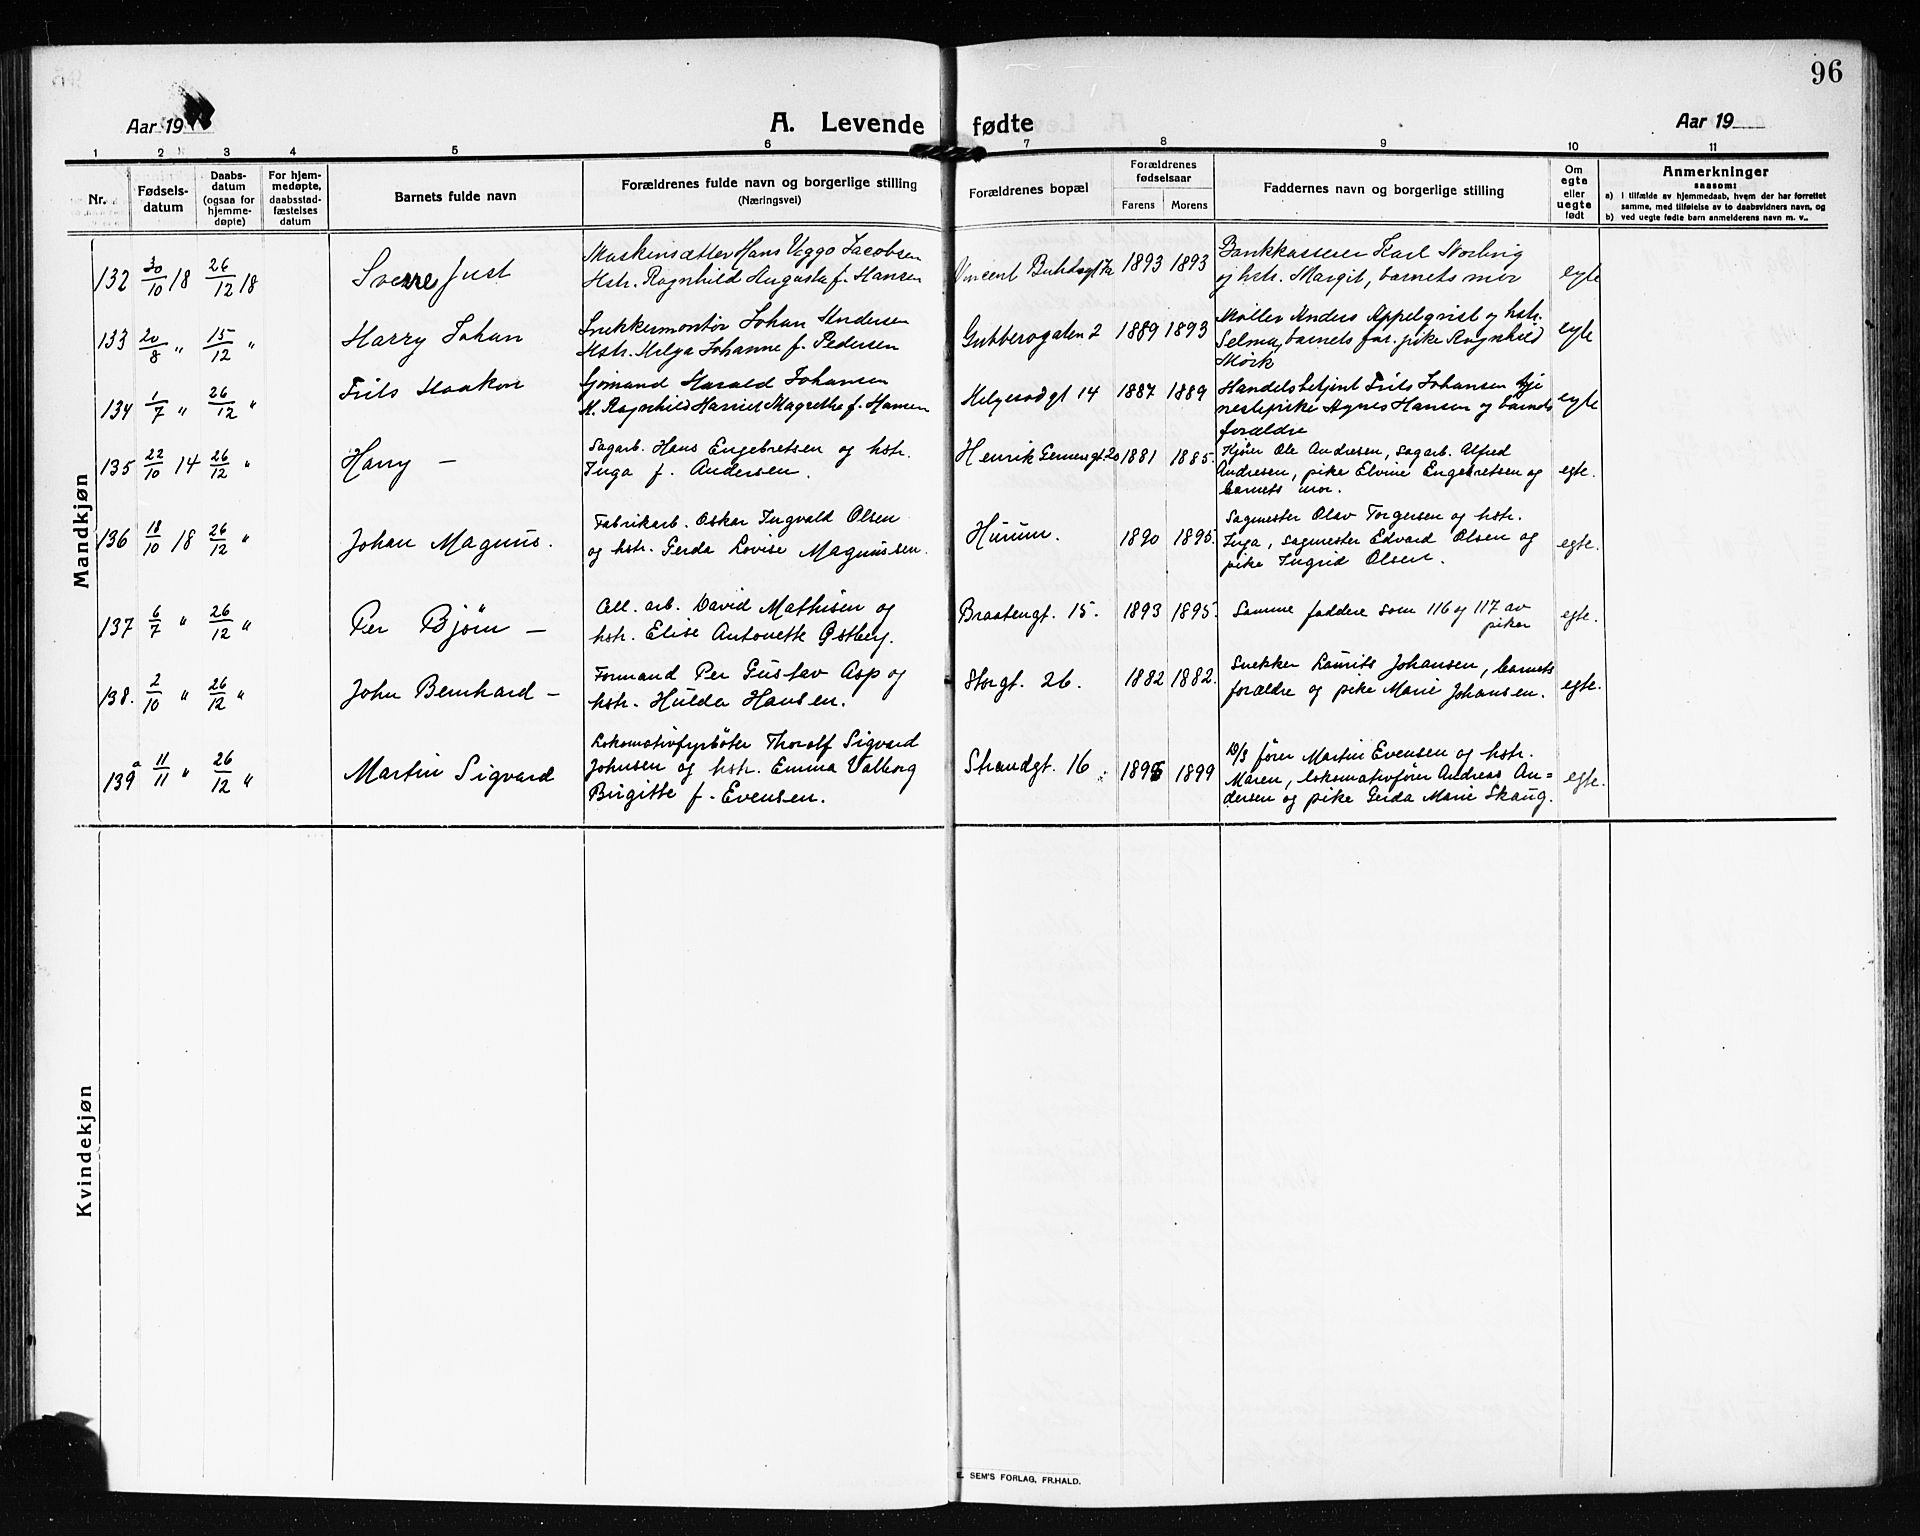 96
Aar 19
A. Levende fødte
Aar 19
1 2 3 4 5 6 7 8 9 10 11
Nr.
Fødselsdatum
Daabsdatum (ogsaa for hjemmedøpte)
For hjemmedøpte, daabsstadfæstelses datum
Barnets fulde navn
Forældrenes fulde navn og borgerlige stilling
(Næringsvei)
Forældrenes bopæl
Forældrenes fødselsaar
Farens Morens
Faddernes navn og borgerlige stilling
Om egte eller uegte født
Anmerkninger
saasom:
a) i tilfælde av hjemmedaab, hvem der har forrettet
samme, med tilføielse av to daabsvidners navn, og
b) ved uegte fødte barn anmelderens navn m. v..
Mandkjøn
132 30/10 18 26/12 18 Sverre Just
Maskinsætter Hans Viggo Jacobsen
Hstr. Ragnhild Augusta f. Hansen
Vincent 1893 1893
Bankkasserer Karl Norling
og hstr. Margit, barnets mor
egte
133 20/8 " 15/12 " Harry Johan
Snekkermontør Johan Andersen
Hstr. Helga Johanne f. Pedersen
Gubberogaten 2 1889 1893
Møller Anders Appelqvist og hstr.
Selma, barnets far. pike Ragnhild
Mørk
egte
134 1/7 " 26/12 " Frits Haakon
Harald Johansen
H. Ragnhild Harriet Magrethe f. Hansen
14 1887 1889
Handelsbetjent Frits Johansen tje
nestepike Agnes Hansen og barnets
forældre
egte
135 22/10 14 26/12 " Harry —
Sagarb. Hans Engebretsen og hstr.
Inga f. Andersen.
Henrik Gernersgt. 20 1881 1885.
Kjører Ole Andresen, sagarb. Alfred
Andresen, pike Elvine Engebretsen og
barnets mor.
egte.
136 18/10 18 26/12 " Johan Magnus.
Fabrikarb. Oskar Ingvald Olsen
og hstr. Gerda Lovise Magnussen.
Hurum. 1890 1895.
Sagmester Olav Torgersen og hstr.
Inga, sagmester Edvard Olsen og
pike Ingrid Olsen.
egte.
137 6/7 " 26/12 " Per Bjørn —
Cell. arb. David Mathisen og
hstr. Elise Antonette Østberg.
Braatengt. 15. 1893 1895.
Samme faddere som 116 og 117 av
piker
egte.
138. 2/10 " 26/12 " John Bernhard —
Formand Per Gustav Asp og
hstr. Hulda Hansen.
Storgt. 26. 1882 1882.
Snekker Laurits Johansen, barnets
forældre og pike Marie Johansen.
egte.
139a 11/11 " 26/12 " Martin Sigvard
Lokomotivfyrbøter Thorolf Sigvard
Johnsen og hstr. Emma Valborg
Birgitte f. Evensen.
Strandgt. 16. 1895 1899
D/S fører Martin Evensen og hstr.
Maren, lokomotivfører Andreas An=
dersen og pike Gerda Marie Skaug.
egte.
Kvindekjøn
E. SEM'S FORLAG, FR.HALD.